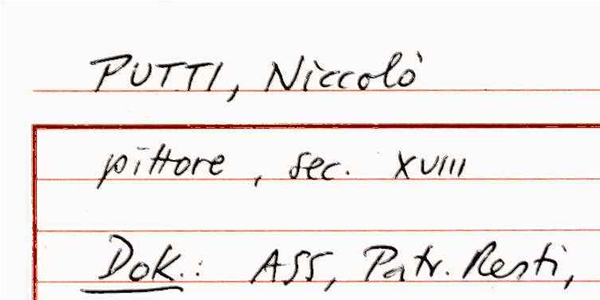 PUTTI, Niccolò
pittore, sec. XVIII
Dok.: ASS, Patr. Resti,